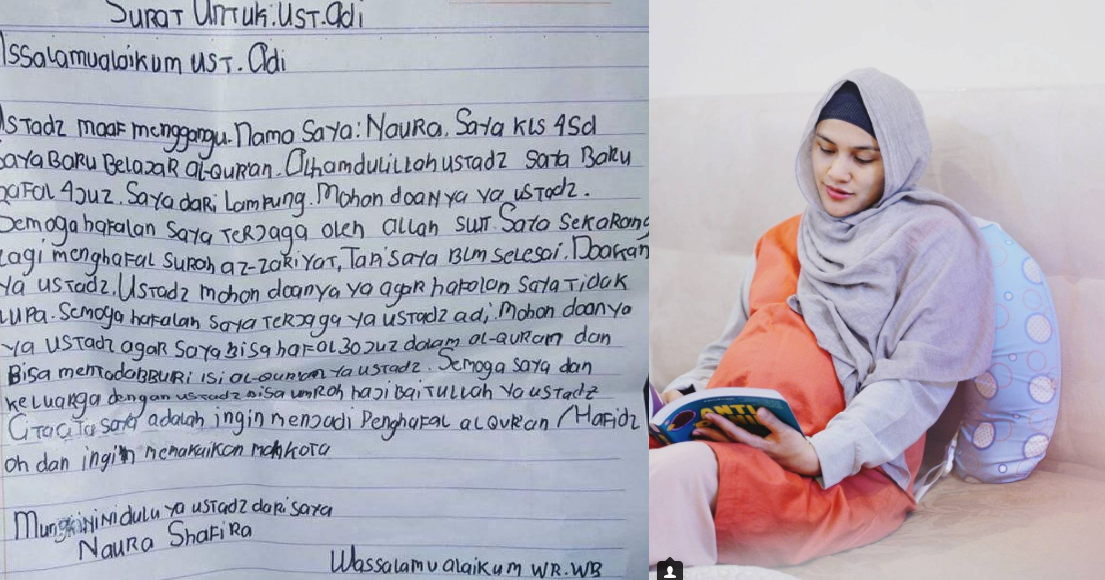 SURAT UNTUK. UST. Adi
Assalamualaikum UST. Adi
Ustadz maaf menggangu. Nama Saya: NAURA. Saya KLS 4Sd
Saya BARU BELAJAR al-QURAN. Alhamdulillah ustadz saya Baru
hafal 4 Juz. Saya dari Lampung. Mohon doanya ya ustadz.
Semoga hafalan saya TERJaga oleh allah SWT. Saya sekarang
lagi menghafal SURah az-zariyat, Tapi saya BLM selesai. Doakan
ya ustadz. Ustadz mohon doanya ya agar hafalan saya Tidak
LUPA. Semoga hafalan saya TERJaga ya ustadz adi. Mohon doanya
ya USTadz agar saya bisa hafal 30 Juz dalam al-QURAN dan
Bisa mentadaBBURi isi al-QURAN ya ustadz. Semoga saya dan
keluarga dengan ustadz bisa umroh haji BaiTullah ya ustadz
CiTaciTa saya adalah ingin menJadi Penghafal alQUR'an /Hafidz
oh dan ingin memakaikan mahkota
Mungkin ini dulu ya usTadz dari saya
NAURA ShaFiRa
Wassalamualaikum WR.WB
ANTI